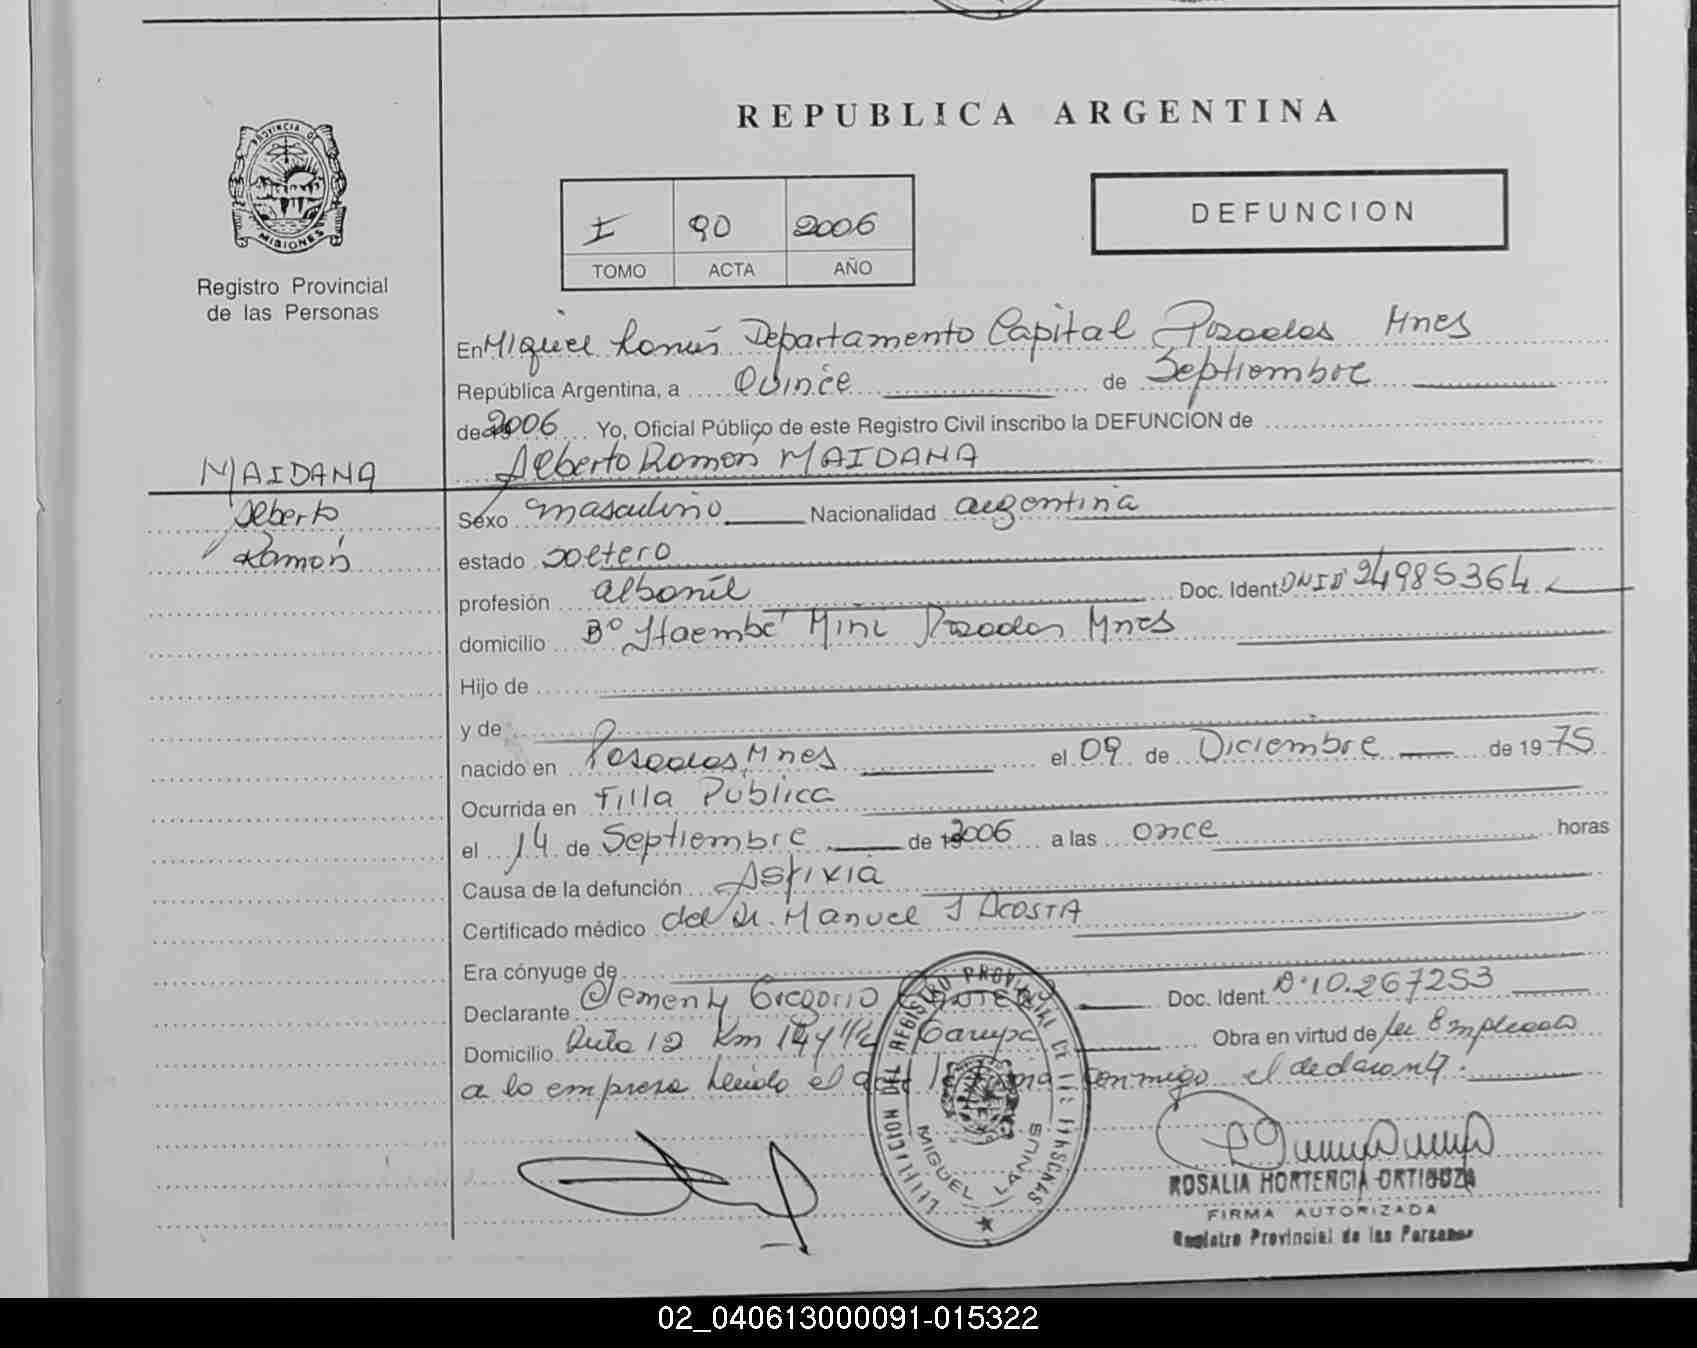 REPUBLICA ARGENTINA
PROVINCIA DE
MISIONES
Registro Provincial
de las Personas
I 90 2006
TOMO ACTA AÑO
DEFUNCION
En Miguel Lanús Departamento Capital Posadas Mnes
República Argentina, a Quince de Septiembre
de 2006 Yo, Oficial Público de este Registro Civil inscribo la DEFUNCION de
Alberto Ramón MAIDANA
MAIDANA
Alberto
Ramón
Sexo masculino Nacionalidad argentina
estado soltero
profesión albañil Doc. Ident. DNI Nº 24985364
domicilio Bº Itaembé Mini Posadas Mnes
Hijo de
y de
nacido en Posadas, Mnes el 09 de Diciembre de 1975
Ocurrida en Filla Pública
el 14 de Septiembre de 2006 a las once horas
Causa de la defunción Asfixia
Certificado médico del Dr. Manuel J ACOSTA
Era cónyuge de
Declarante Clemente Gregorio Doc. Ident. D.10.267253
Domicilio Ruta 12 Km 14 y 1/2 Garupá Obra en virtud de ser Empleado
a la empresa Leído el acta la firma conmigo el declarante.
DEL REGISTRO PROVINCIAL DE LAS PERSONAS
MIGUEL LANUS
ROSALIA HORTENCIA ORTIGOZA
FIRMA AUTORIZADA
Registro Provincial de las Personas
02_040613000091-015322